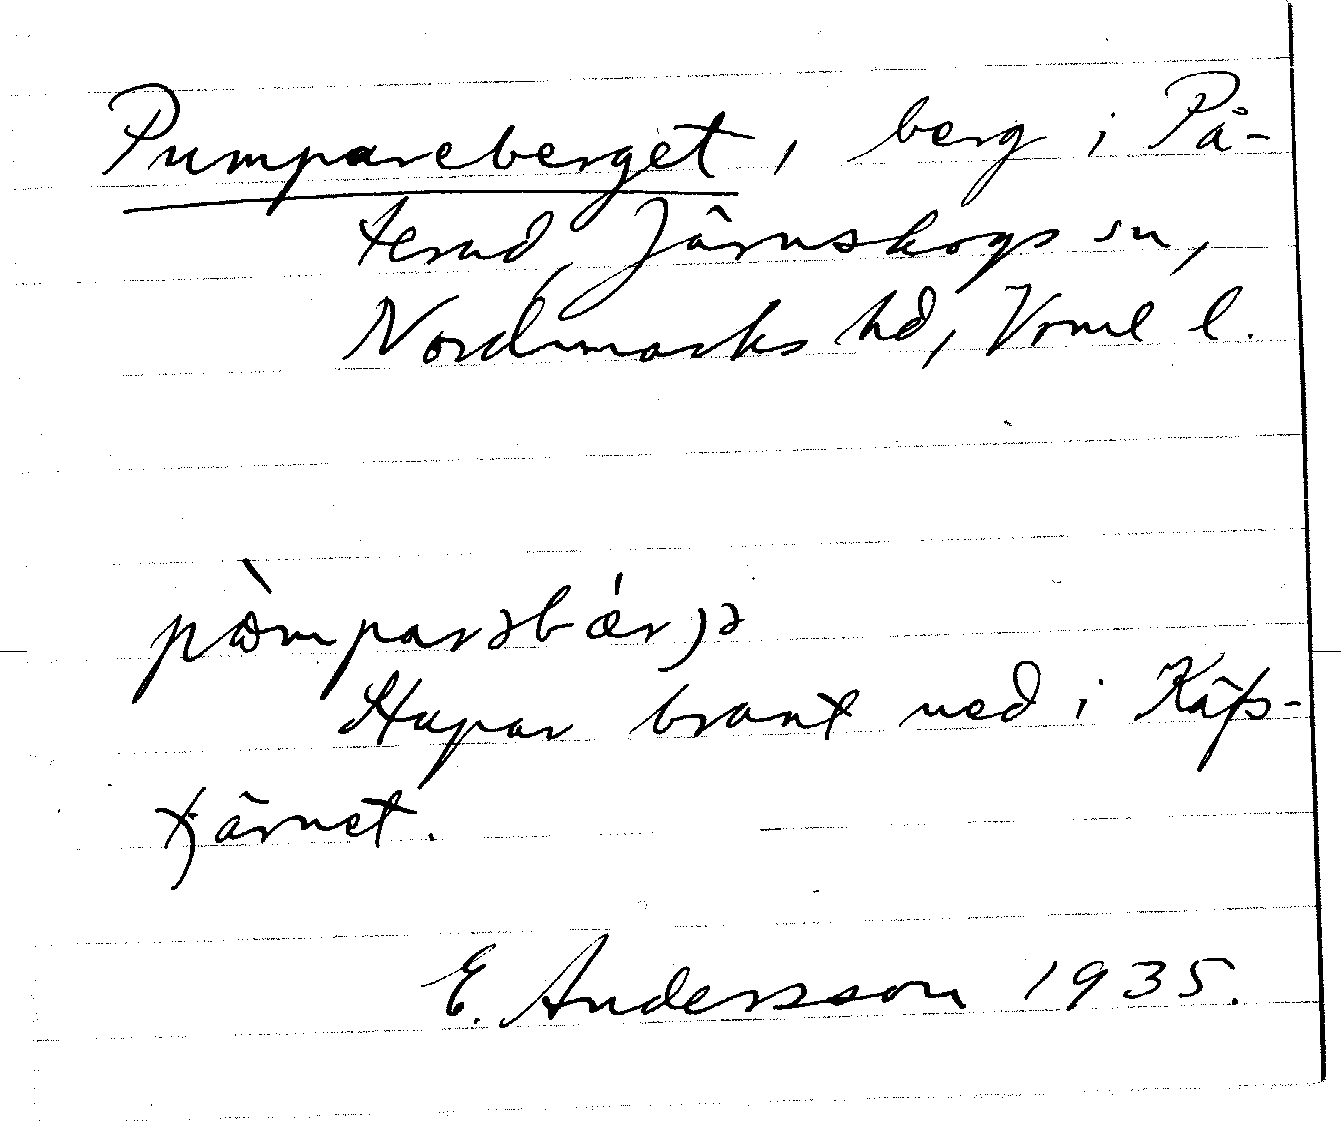 Pumpareberget, berg i På-
terud, Järnskogs sn,
Nordmarks hd, Vrml l.
pòmparəbǽrjə
Stupar brant ned i Käfs-
tjärnet.
E. Andersson 1935.